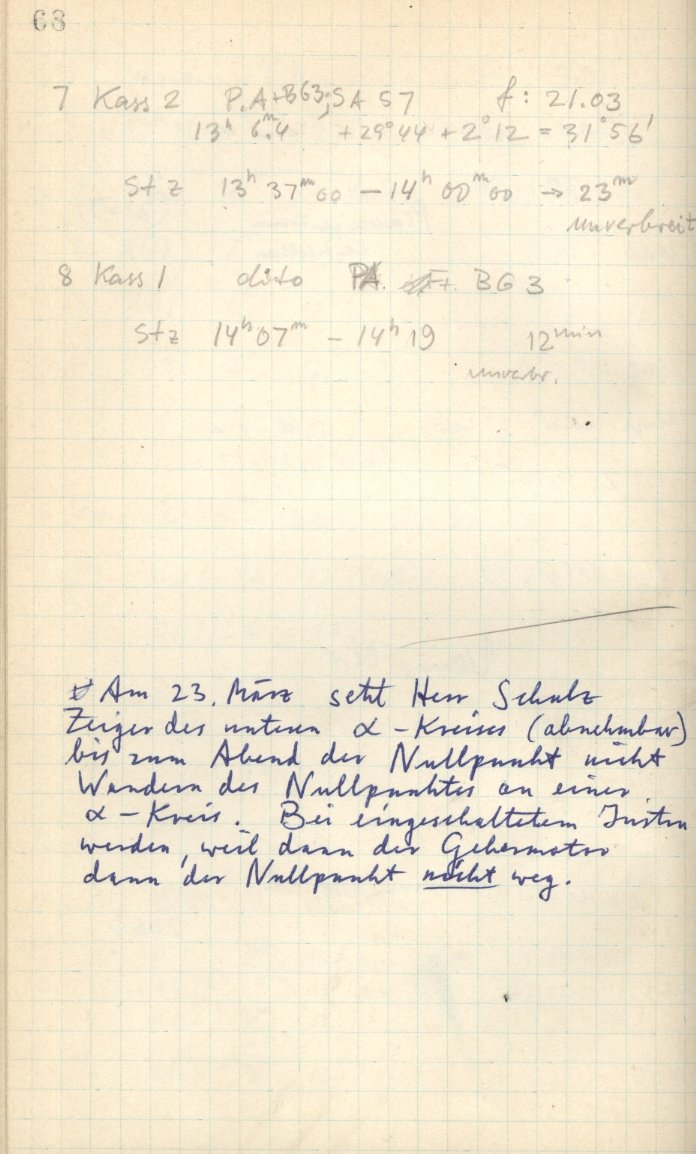 63
7 Kass 2 P.A+BG3; SA 57 f: 21.03
13ʰ 6ᵐ.4 +29°44 + 2°12 = 31°56'
Stz 13ʰ 37ᵐ00 – 14ʰ 00ᵐ00 → 23ᵐ
unverbreit
8 Kass 1 dito PA. BG 3
Stz 14ʰ07ᵐ – 14ʰ19 12min
unverbr.
Am 23. März setzt Herr Schulz
Zeiger des unteren α-Kreises (abnehmbar)
bis zum Abend der Nullpunkt nicht
Wandern des Nullpunktes an einer
α-Kreis. Bei eingeschaltetem Instru
werden, weil dann der Gebermotor
dann der Nullpunkt nicht weg.